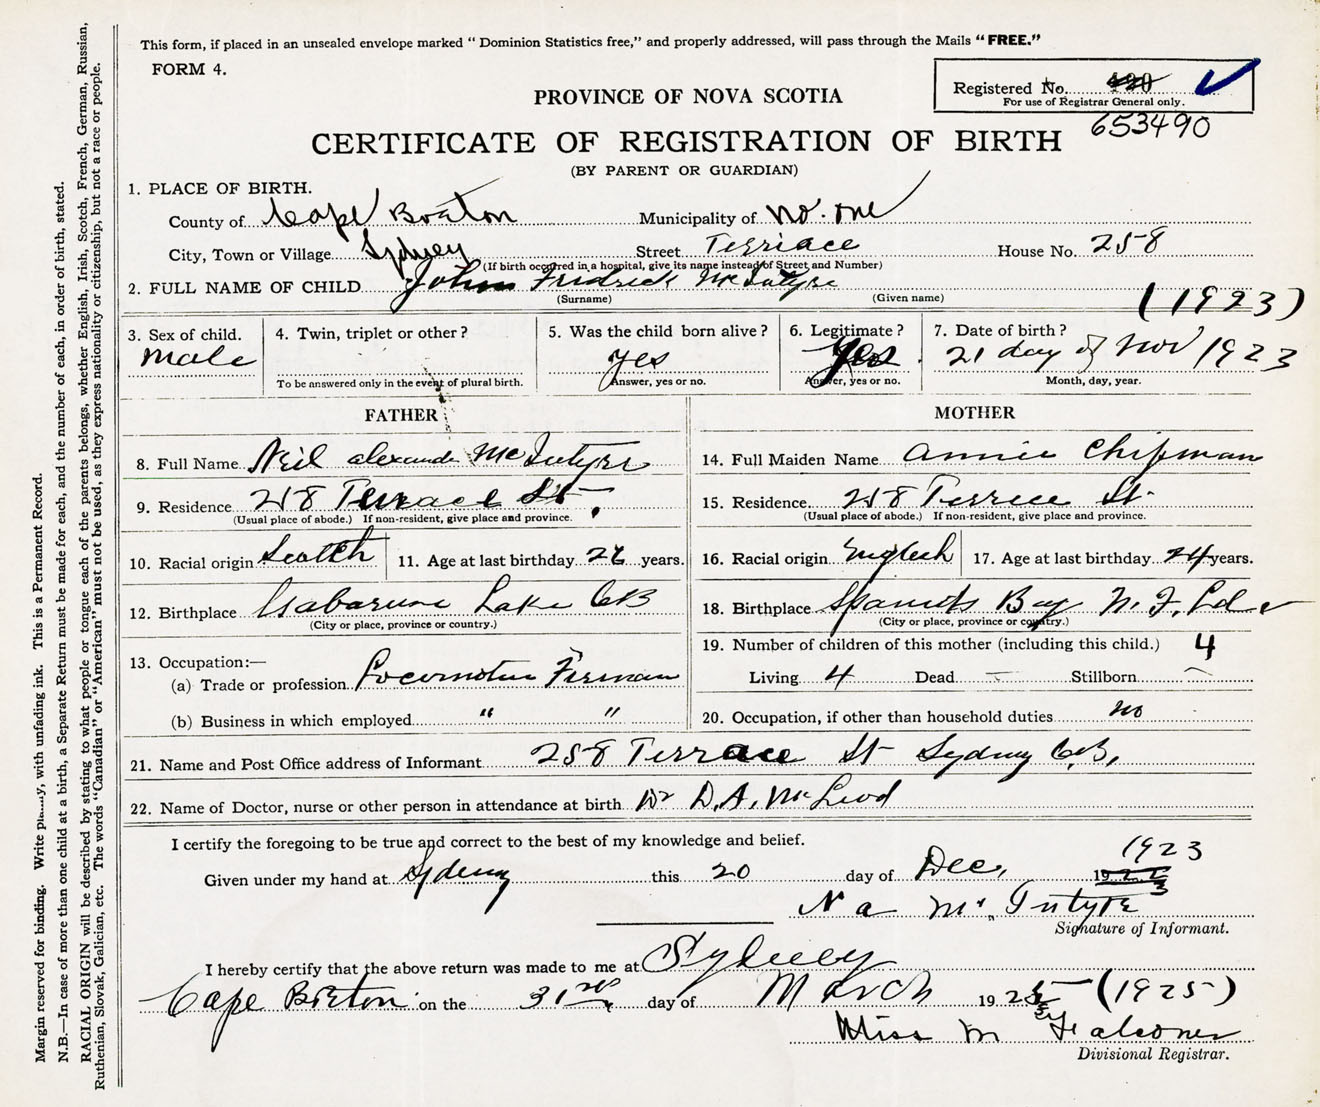 This form, if placed in an unsealed envelope marked " Dominion Statistics free," and properly addressed, will pass through the Mails " FREE."
FORM 4.
Registered No. 420
For use of Registrar General only.
653490
PROVINCE OF NOVA SCOTIA
CERTIFICATE OF REGISTRATION OF BIRTH
(BY PARENT OR GUARDIAN)
1. PLACE OF BIRTH.
County of Cape Breton Municipality of No. one
City, Town or Village Sydney Street Terriace House No. 258
(If birth occurred in a hospital, give its name instead of Street and Number)
2. FULL NAME OF CHILD John Fredrick McIntyre
(Surname) (Given name)
(1923)
3. Sex of child. 4. Twin, triplet or other? 5. Was the child born alive? 6. Legitimate? 7. Date of birth?
Male yes Yes 21 day of Nov 1923
To be answered only in the event of plural birth. Answer, yes or no. Answer, yes or no. Month, day, year.
FATHER MOTHER
8. Full Name Neil alexander McIntyre 14. Full Maiden Name Annie Chipman
9. Residence 258 Terrace St. 15. Residence 258 Terrice St.
(Usual place of abode.) If non-resident, give place and province. (Usual place of abode.) If non-resident, give place and province.
10. Racial origin Scotch 11. Age at last birthday years. 16. Racial origin English 17. Age at last birthday 24 years.
12. Birthplace Gabarouse Lake CB 18. Birthplace Spaniards Bay N.F.Ld
(City or place, province or country.) (City or place, province or country.)
19. Number of children of this mother (including this child.) 4
Living 4 Dead — Stillborn —
13. Occupation:—
(a) Trade or profession Locomotive Fireman
(b) Business in which employed " " 20. Occupation, if other than household duties no
21. Name and Post Office address of Informant 258 Terrace St Sydney C.B.,
22. Name of Doctor, nurse or other person in attendance at birth Dr D.A. McLeod
I certify the foregoing to be true and correct to the best of my knowledge and belief.
1923
Given under my hand at Sydney this 20 day of Dec. 192 3
N a McIntyre
Signature of Informant.
I hereby certify that the above return was made to me at Sydney
Cape Breton on the 31 day of March 1925 (1925)
Miss M Falconer
Divisional Registrar.
Margin reserved for binding. Write plainly, with unfading ink. This is a Permanent Record.
N.B.—In case of more than one child at a birth, a Separate Return must be made for each, and the number of each, in order of birth, stated.
RACIAL ORIGIN will be described by stating to what people or tongue each of the parents belongs, whether English, Irish, Scotch, French, German, Russian,
Ruthenian, Slovak, Galician, etc. The words "Canadian" or "American" must not be used, as they express nationality or citizenship, but not a race or people.